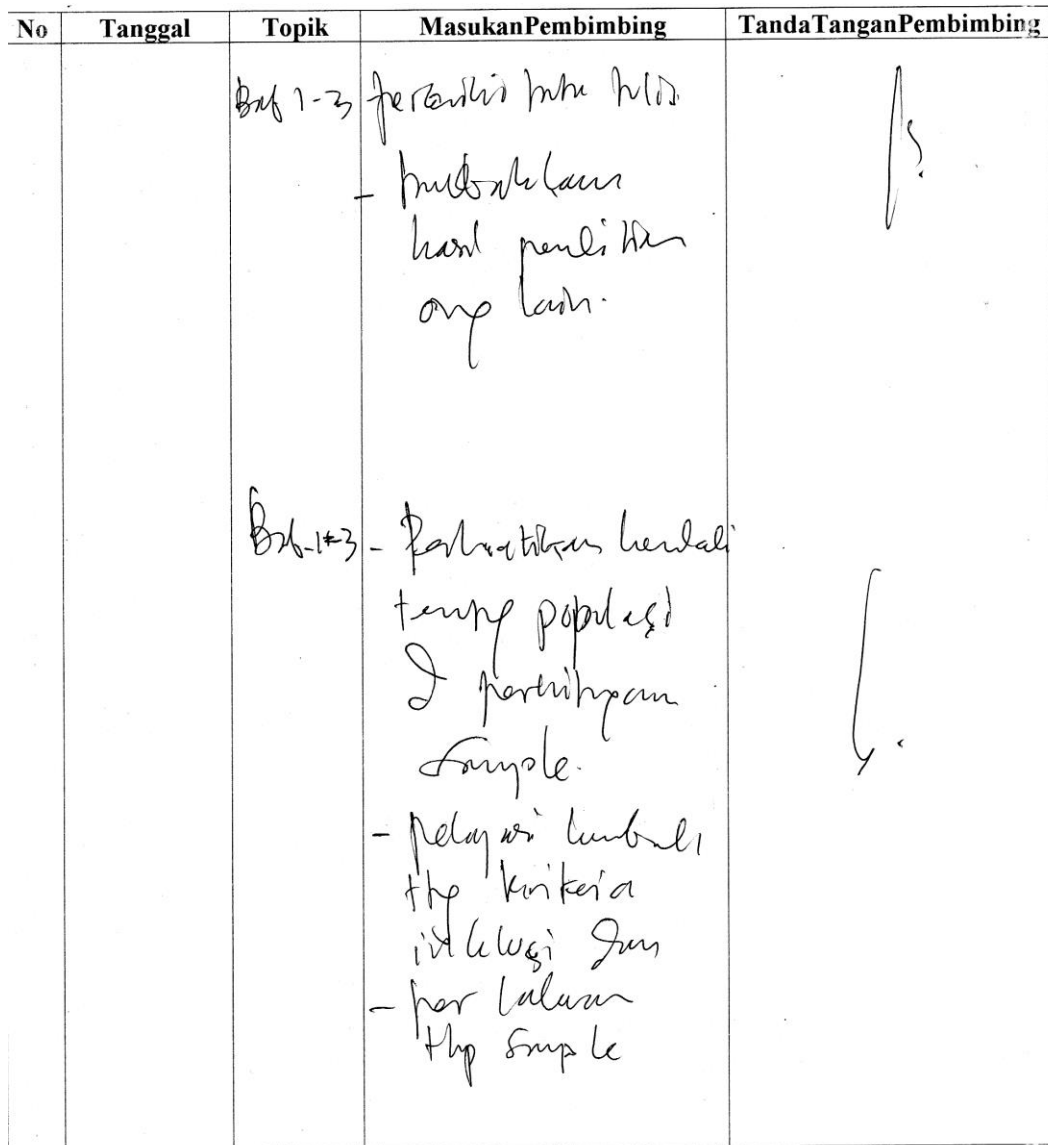 No Tanggal Topik MasukanPembimbing TandaTanganPembimbing
Bab 1-3 perbaiki tulis
-
hasil penelitian
org lain.
Bab-1-3 - Perhatikan kembali
tentang populasi
& perhitungan
sample.
- pelajari kembali
ttg kriteria
inklusi dan
- perlakuan
thp sample